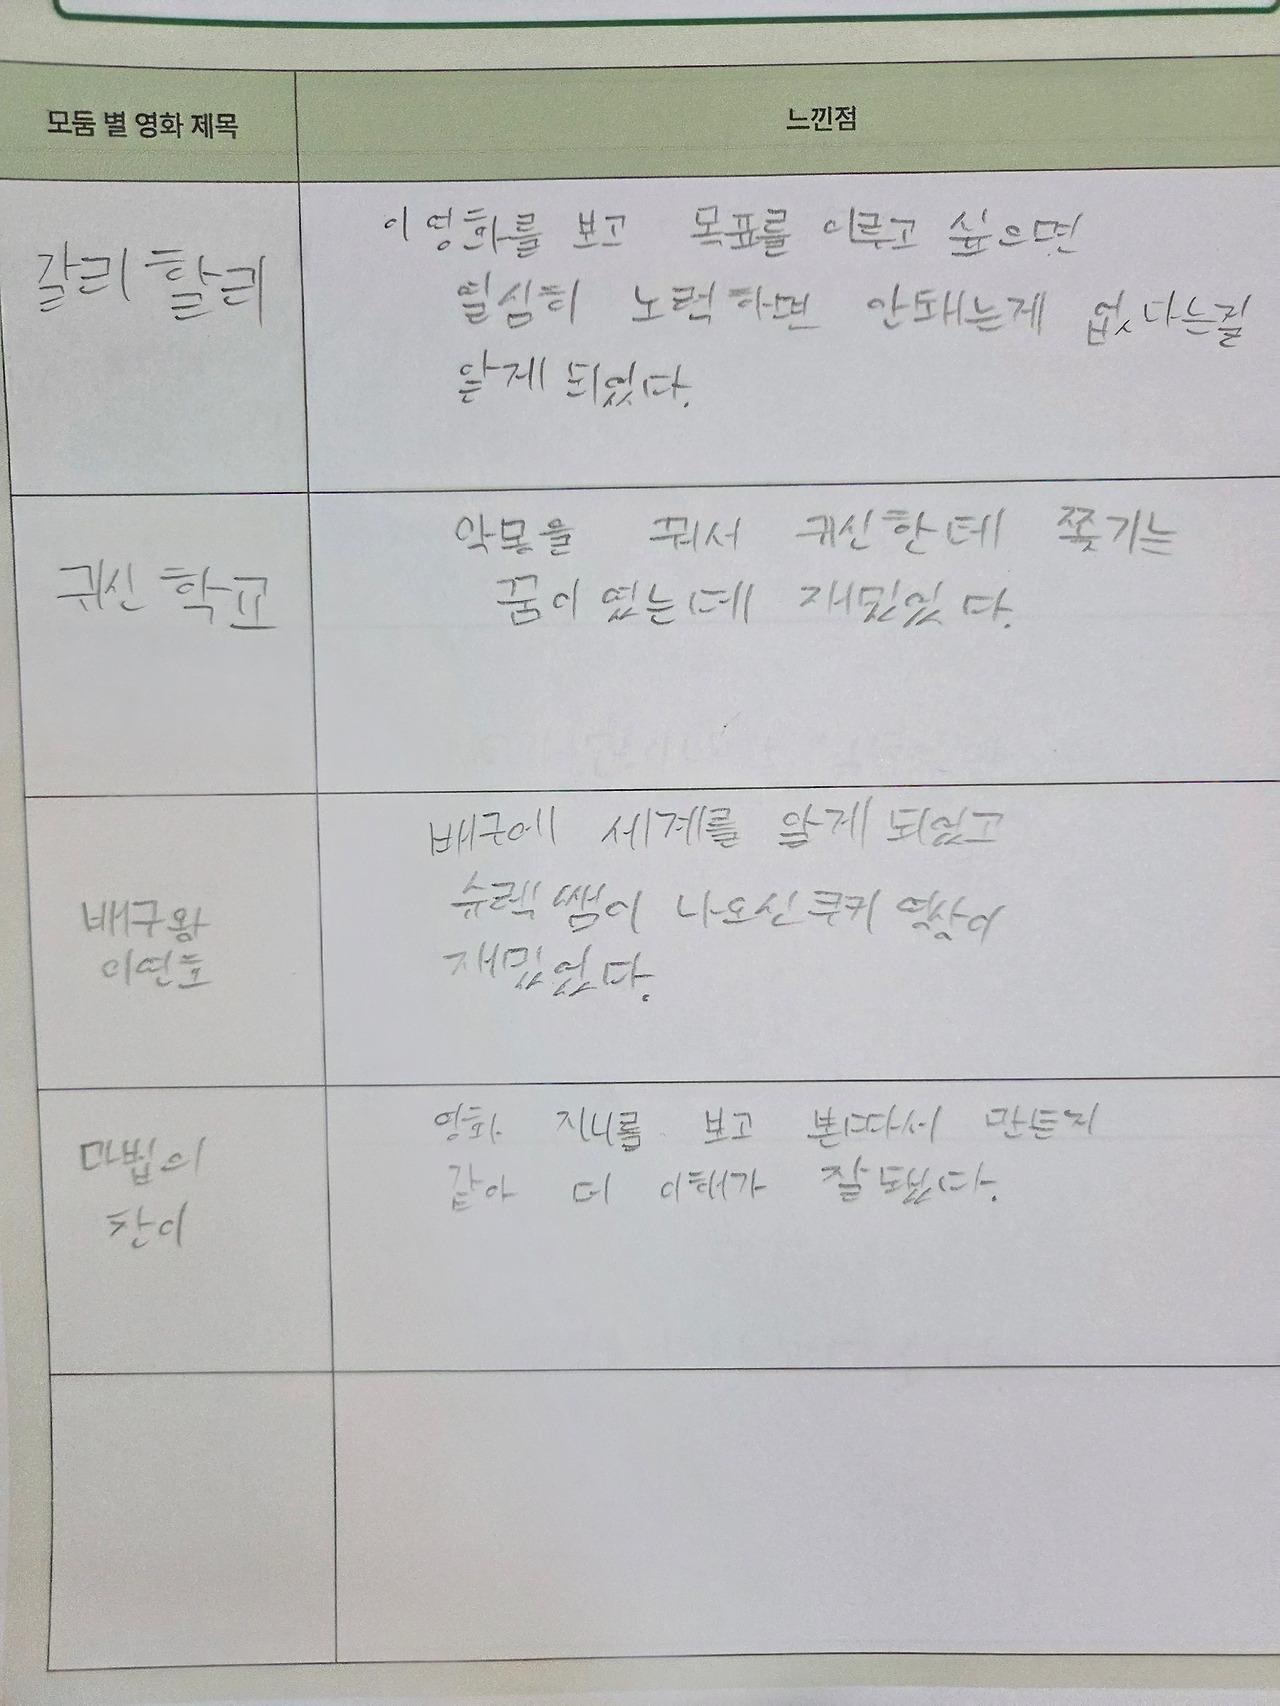 모둠 별 영화 제목
느낀점
갈리 할리
이 영화를 보고 목표를 이루고 싶으면
열심히 노력하면 안돼는게 없다는걸
알게 되었다.
귀신 학교
악몽을 꿔서 귀신한테 쫓기는
꿈이 였는데 재밌었다.
배구왕
이연호
배구에 세계를 알게 되었고
슈렉쌤이 나오신 쿠키 영상이
재밌었다.
마법의
찬이
영화 지니를 보고 본따서 만든거
같아 더 이해가 잘됐다.